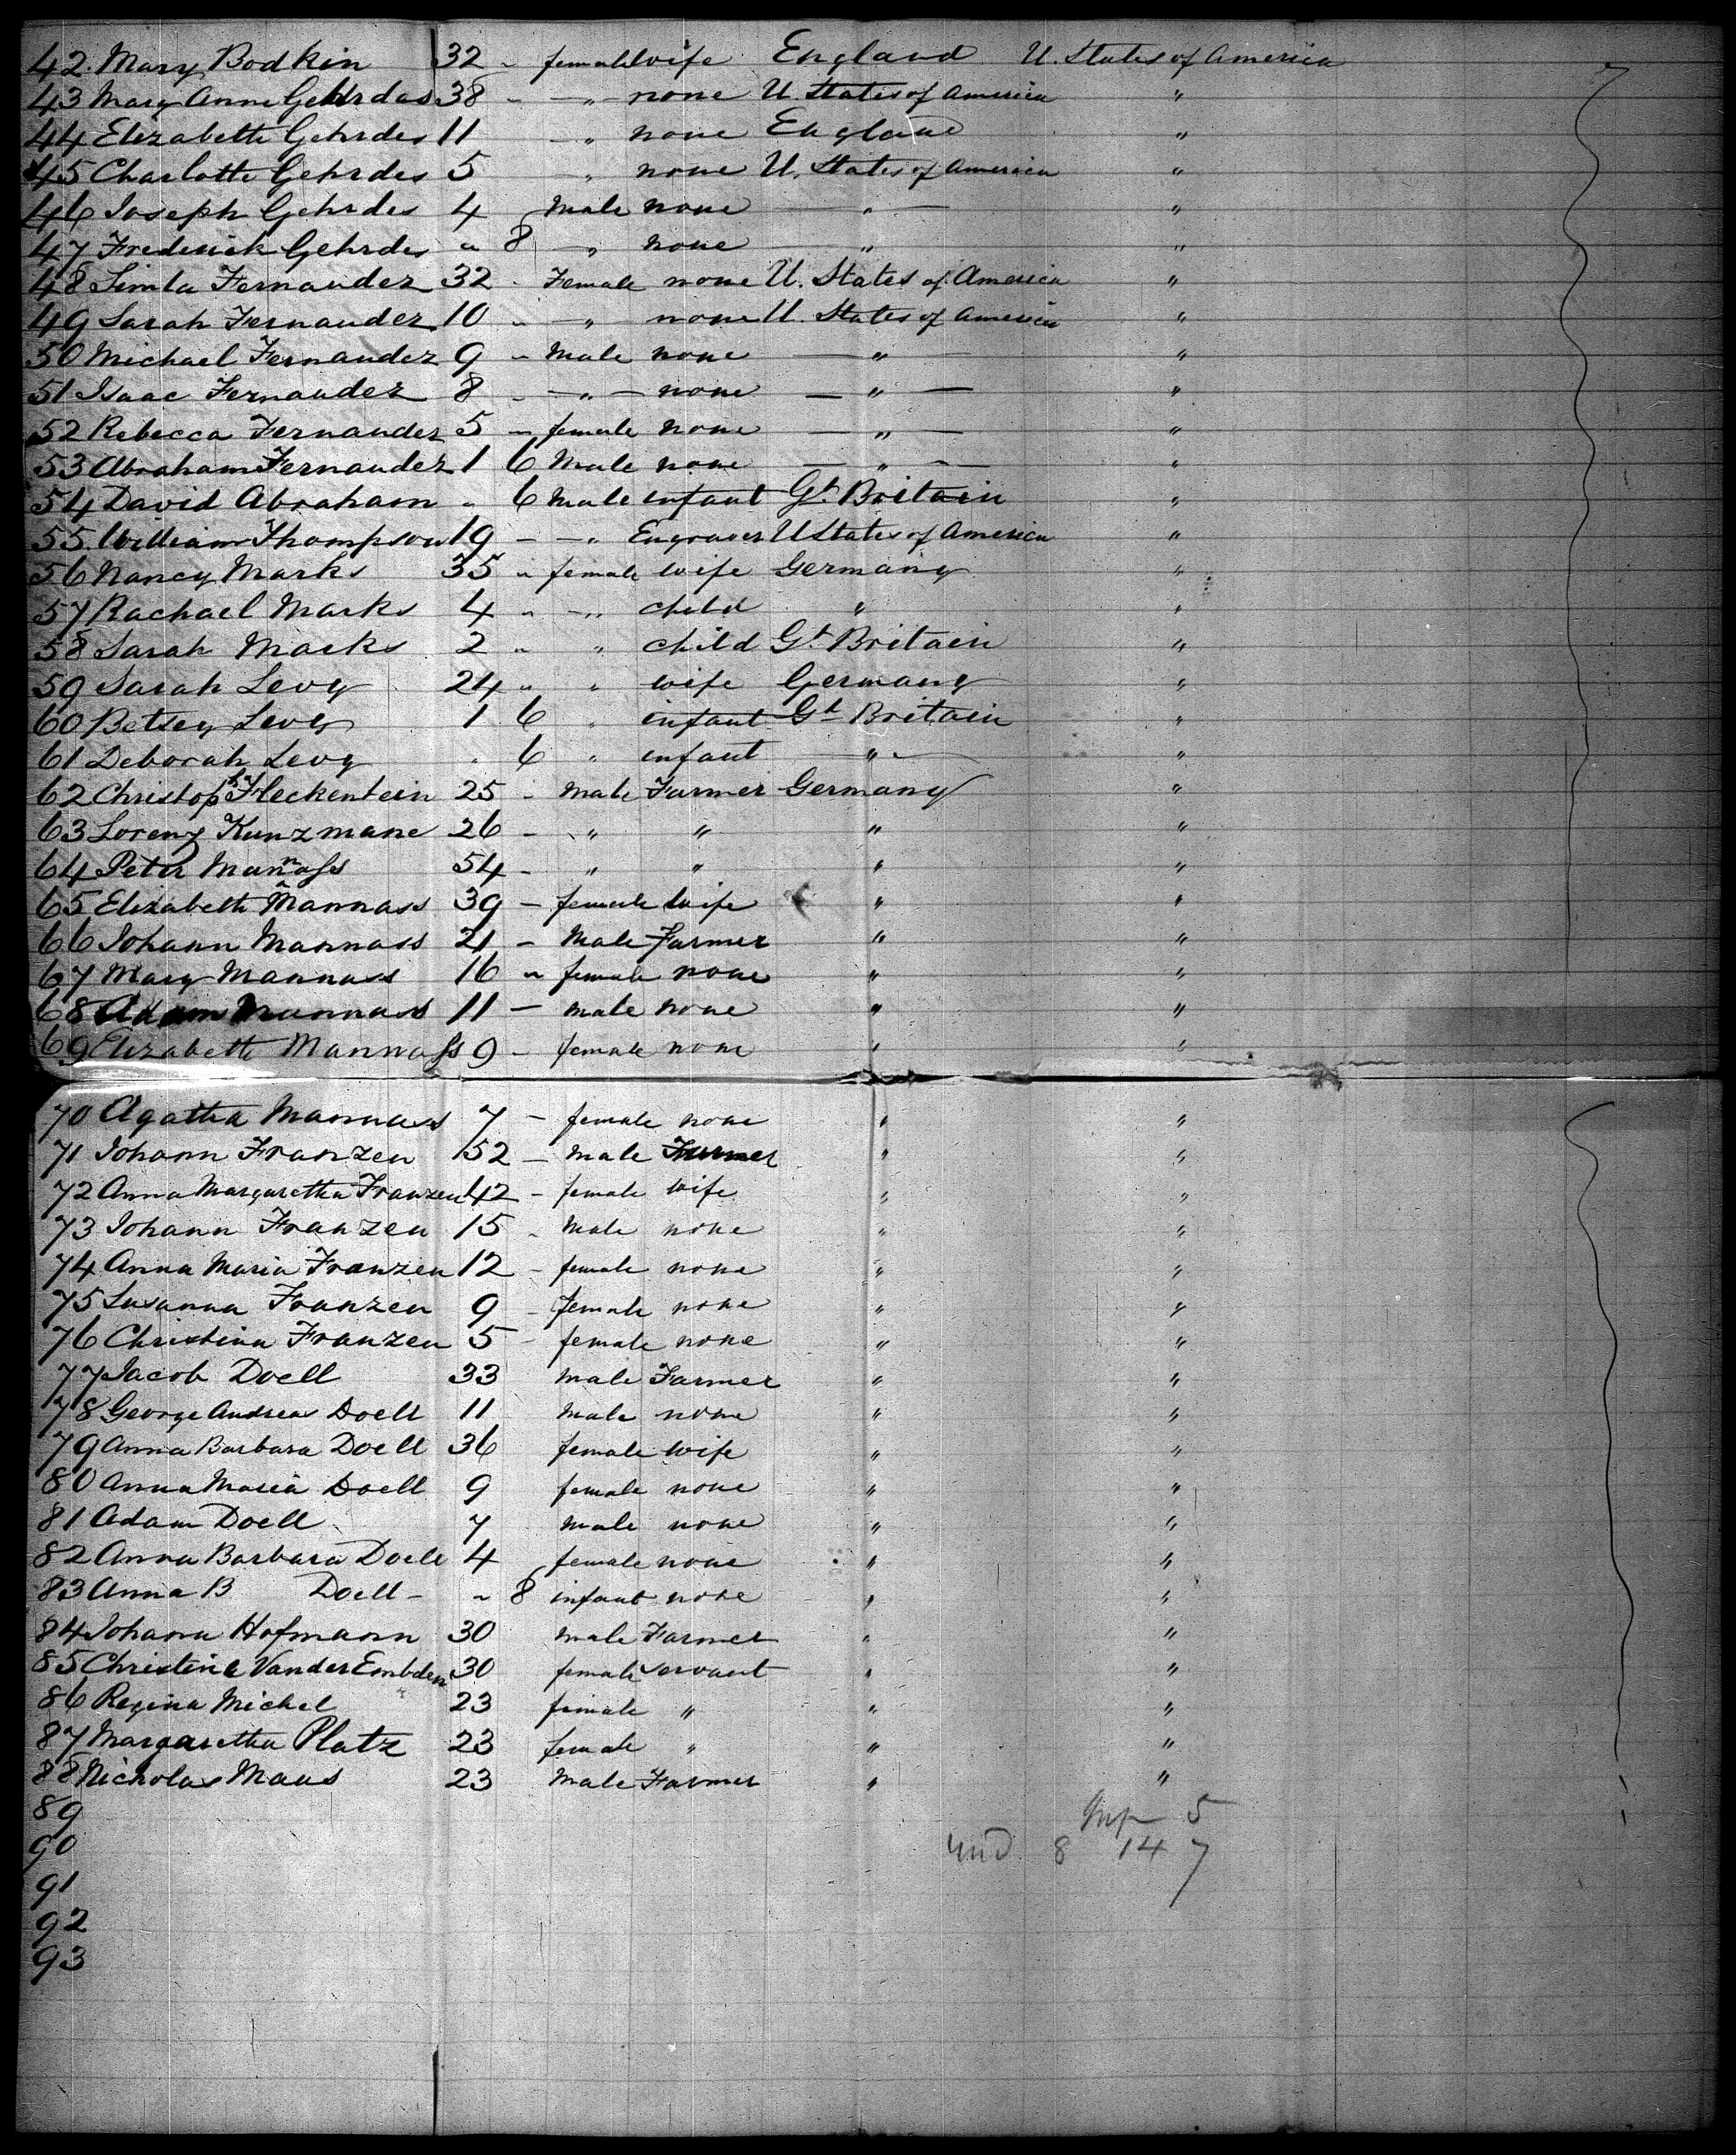 42. Mary Bodkin 32 " female wife England U. States of America
43 Mary Anne Gehrdes 38 " " none U. States of America "
44 Elizabeth Gehrdes 11 " none England "
45 Charlotte Gehrdes 5 " none U. States of America "
46 Joseph Gehrdes 4 Male none " "
47 Frederick Gehrdes " 8 " none " "
48 Simla Fernandez 32 " Female none U. States of America "
49 Sarah Fernandez 10 " " none U. States of America "
50 Michael Fernandez 9 " Male none " "
51 Isaac Fernandez 8 " " none " "
52 Rebecca Fernandez 5 " female none " "
53 Abraham Fernandez 1 6 Male none " "
54 David Abraham " 6 Male infant Gt. Britain "
55. William Thompson 19 - " Engraver U States of America "
56 Nancy Marks 35 " female wife Germany "
57 Rachael Marks 4 " " child " "
58 Sarah Marks 2 " " child Gt. Britain "
59 Sarah Levy 24 " " wife Germany "
60 Betsey Levy 1 6 " infant Gt Britain "
61 Deborah Levy " 6 " infant " "
62 Christoph Fleckentein 25 - Male Farmer Germany "
63 Lorenz Kunzmane 26 - " " " "
64 Peter Mannass 54 - " " " "
65 Elizabeth Mannass 39 - female wife " "
66 Johann Mannass 21 - Male Farmer " "
67 Mary Mannass 16 " female none " "
68 Adam Mannass 11 - male none " "
69 Elizabeth Mannass 9 - female none " "
70 Agatha Mannass 7 - female none " "
71 Johann Franzen 52 - Male Farmer " "
72 Anna Margaretha Franzen 42 - female wife " "
73 Johann Franzen 15 - Male none " "
74 Anna Maria Franzen 12 - female none " "
75 Susanna Franzen 9 - female none " "
76 Christina Franzen 5 - female none " "
77 Jacob Doell 33 Male Farmer " "
78 George Andreas Doell 11 Male none " "
79 Anna Barbara Doell 36 female wife " "
80 Anna Maria Doell 9 female none " "
81 Adam Doell 7 Male none " "
82 Anna Barbara Doell 4 female none " "
83 Anna B Doell - " 8 infant none " "
84 Johann Hofmann 30 Male Farmer " "
85 Christine Vander Embden 30 female servant " "
86 Regina Michel 23 female " " "
87 Margaretha Platz 23 female " " "
88 Nicholas Maus 23 Male Farmer " "
89 5
90 und 8 14 7
91
92
93